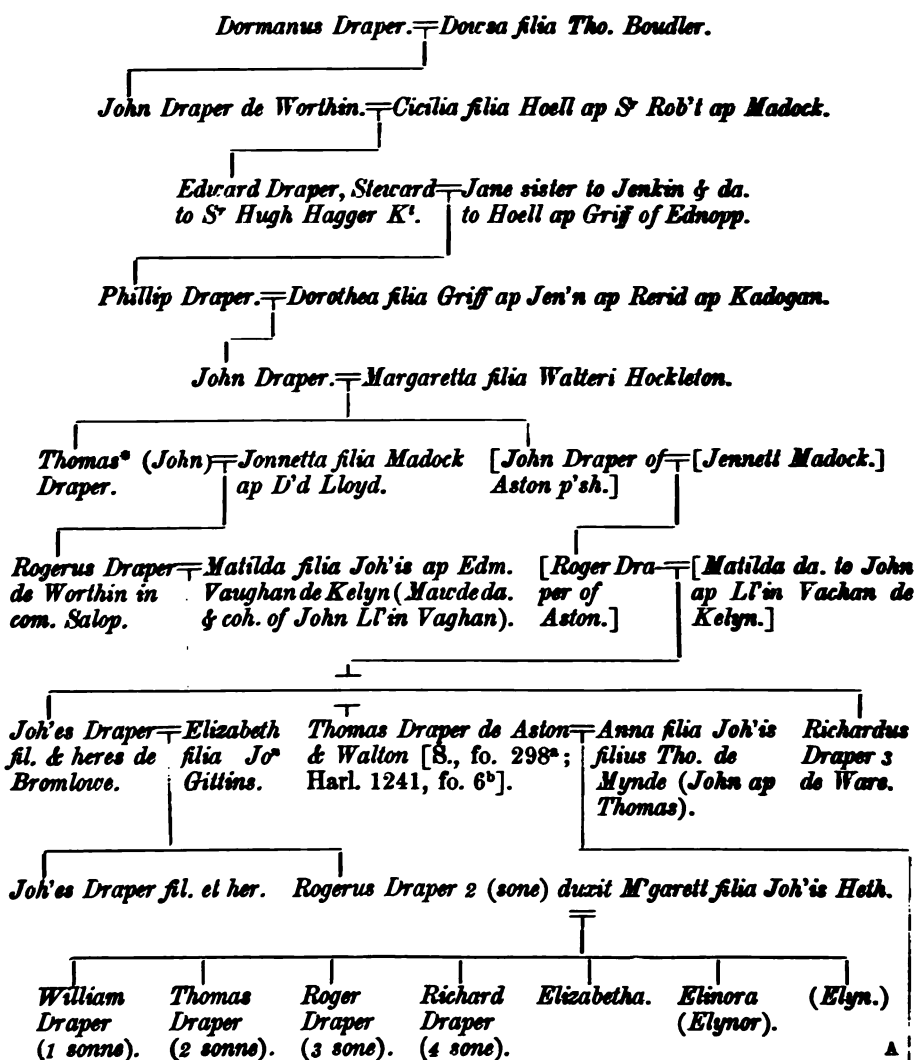 Dormanus Draper. Dowsa filia Tho. Boudler.
John Draper de Worthin. Cicilia filia Hoell ap Sr Rob't ap Madock.
Edward Draper, Steward
to Sr Hugh Hagger Kt.
Jane sister to Jenkin & da.
to Hoell ap Griff of Ednopp.
Phillip Draper. Dorothea filia Griff ap Jen'n ap Rerid ap Kadogan.
John Draper. Margaretta filia Walteri Hockleton.
Thomas* (John)
Draper.
Jonnetta filia Madock
ap D'd Lloyd.
[John Draper of
Aston p'sh.]
[Jennett Madock.]
Rogerus Draper
de Worthin in
com. Salop.
Matilda filia Joh'is ap Edm.
Vaughan de Kelyn (Mawde da.
& coh. of John Ll'in Vaghan).
[Roger Dra-
per of
Aston.]
[Matilda da. to John
ap Ll'in Vachan de
Kelyn.]
Joh'es Draper
fil. & heres de
Bromlowe.
Elizabeth
filia Jon
Gittins.
Thomas Draper de Aston
& Walton [S., fo. 298a;
Harl. 1241, fo. 6b].
Anna filia Joh'is
filius Tho. de
Mynde (John ap
Thomas).
Richardus
Draper 3
de Ware.
Joh'es Draper fil. et her.
Rogerus Draper 2 (sone) duxit M'garett filia Joh'is Heth.
William
Draper
(1 sonne).
Thomas
Draper
(2 sonne).
Roger
Draper
(3 sone).
Richard
Draper
(4 sone).
Elizabetha.
Elinora
(Elynor).
(Elyn.)
A